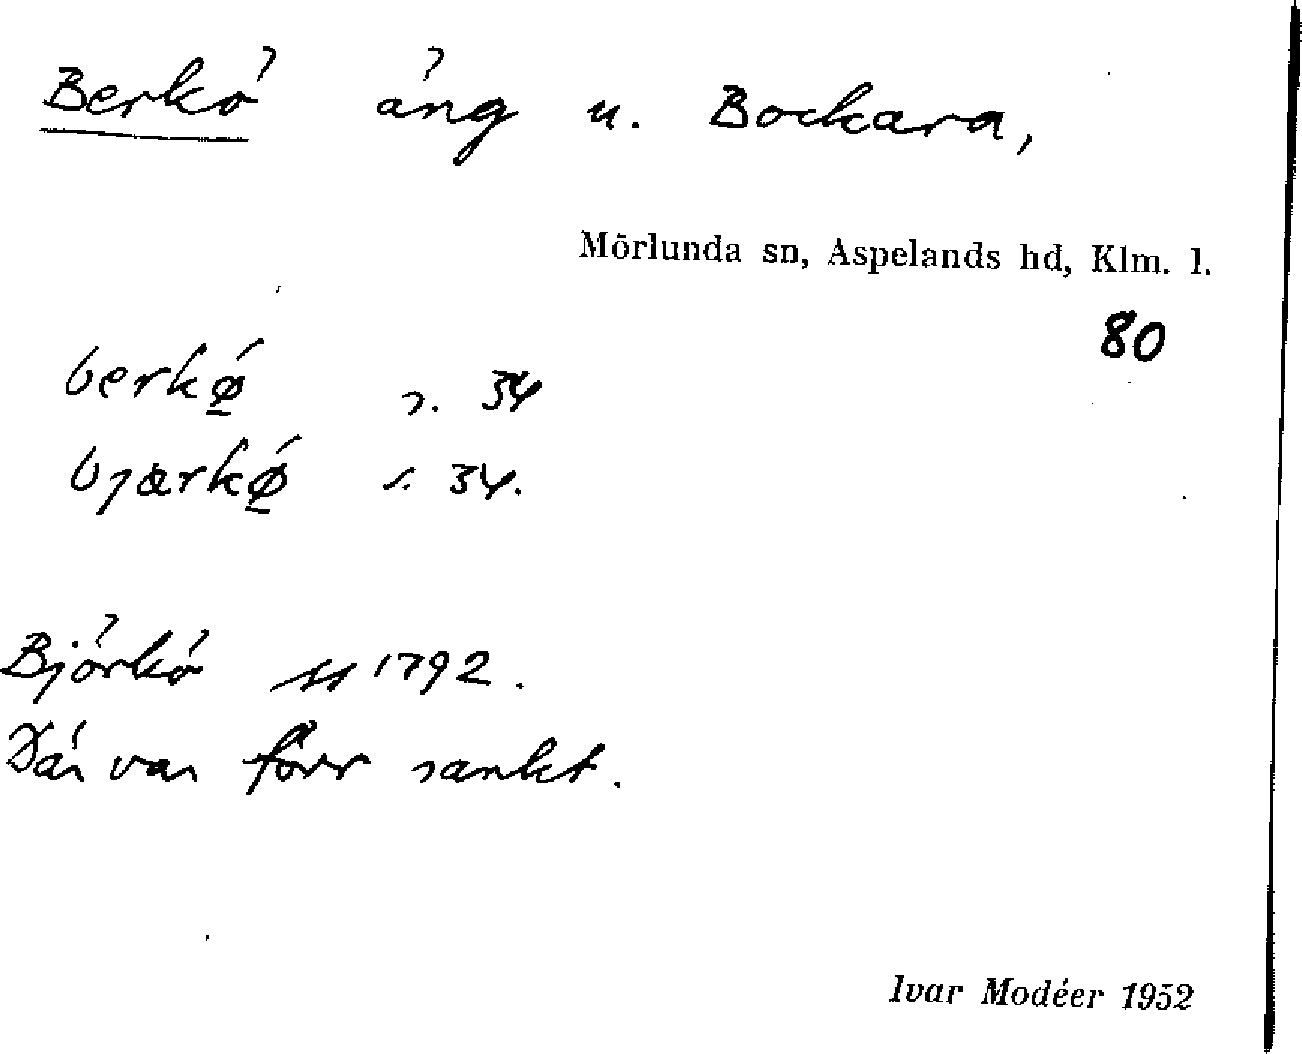 Berkö äng u. Bockara,
Mörlunda sn, Aspelands hd, Klm. l.
80
berkǿ̠ s. 34
bjærkǿ̠ s. 34.
Björkö 1792.
Där var förr sankt.
Ivar Modéer 1952